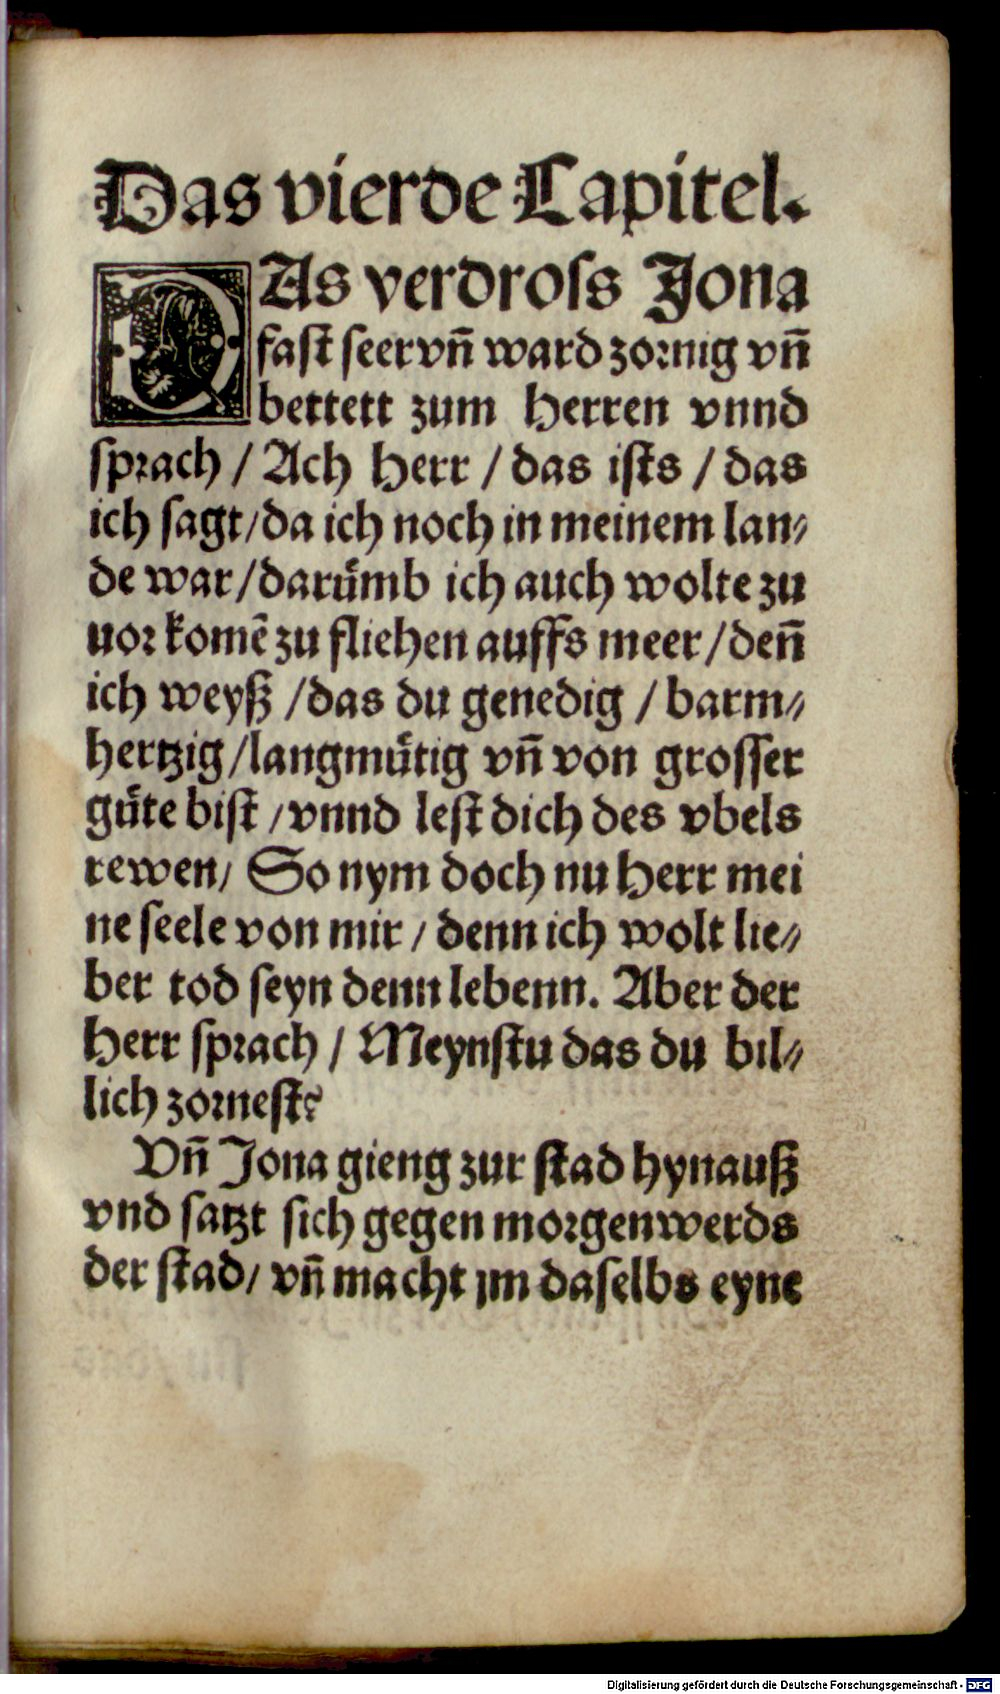 Das vierde Capitel.
DAs verdroſs Jona
faſt ſeer vñ ward zornig vñ
bettett zum Herren vnnd
ſprach / Ach Herr / das iſts / das
ich ſagt/da ich noch in meinem lan⸗
de war/daruͤmb ich auch wolte zu
uor komē zu fliehen auffs meer/deñ
ich weyß /das du genedig / barm⸗
hertzig/langmuͤtig vñ von groſſer
guͤte biſt /vnnd leſt dich des vbels
rewen/ So nym doch nu Herr mei
ne ſeele von mir / denn ich wolt lie⸗
ber tod ſeyn denn lebenn. Aber der
Herr ſprach / Meynſtu das du bil⸗
lich zorneſt?
Vñ Jona gieng zur ſtad hynauß
vnd ſatzt ſich gegen morgenwerds
der ſtad/ vñ macht jm daſelbs eyne
Digitalisierung gefördert durch die Deutsche Forschungsgemeinschaft - DFG